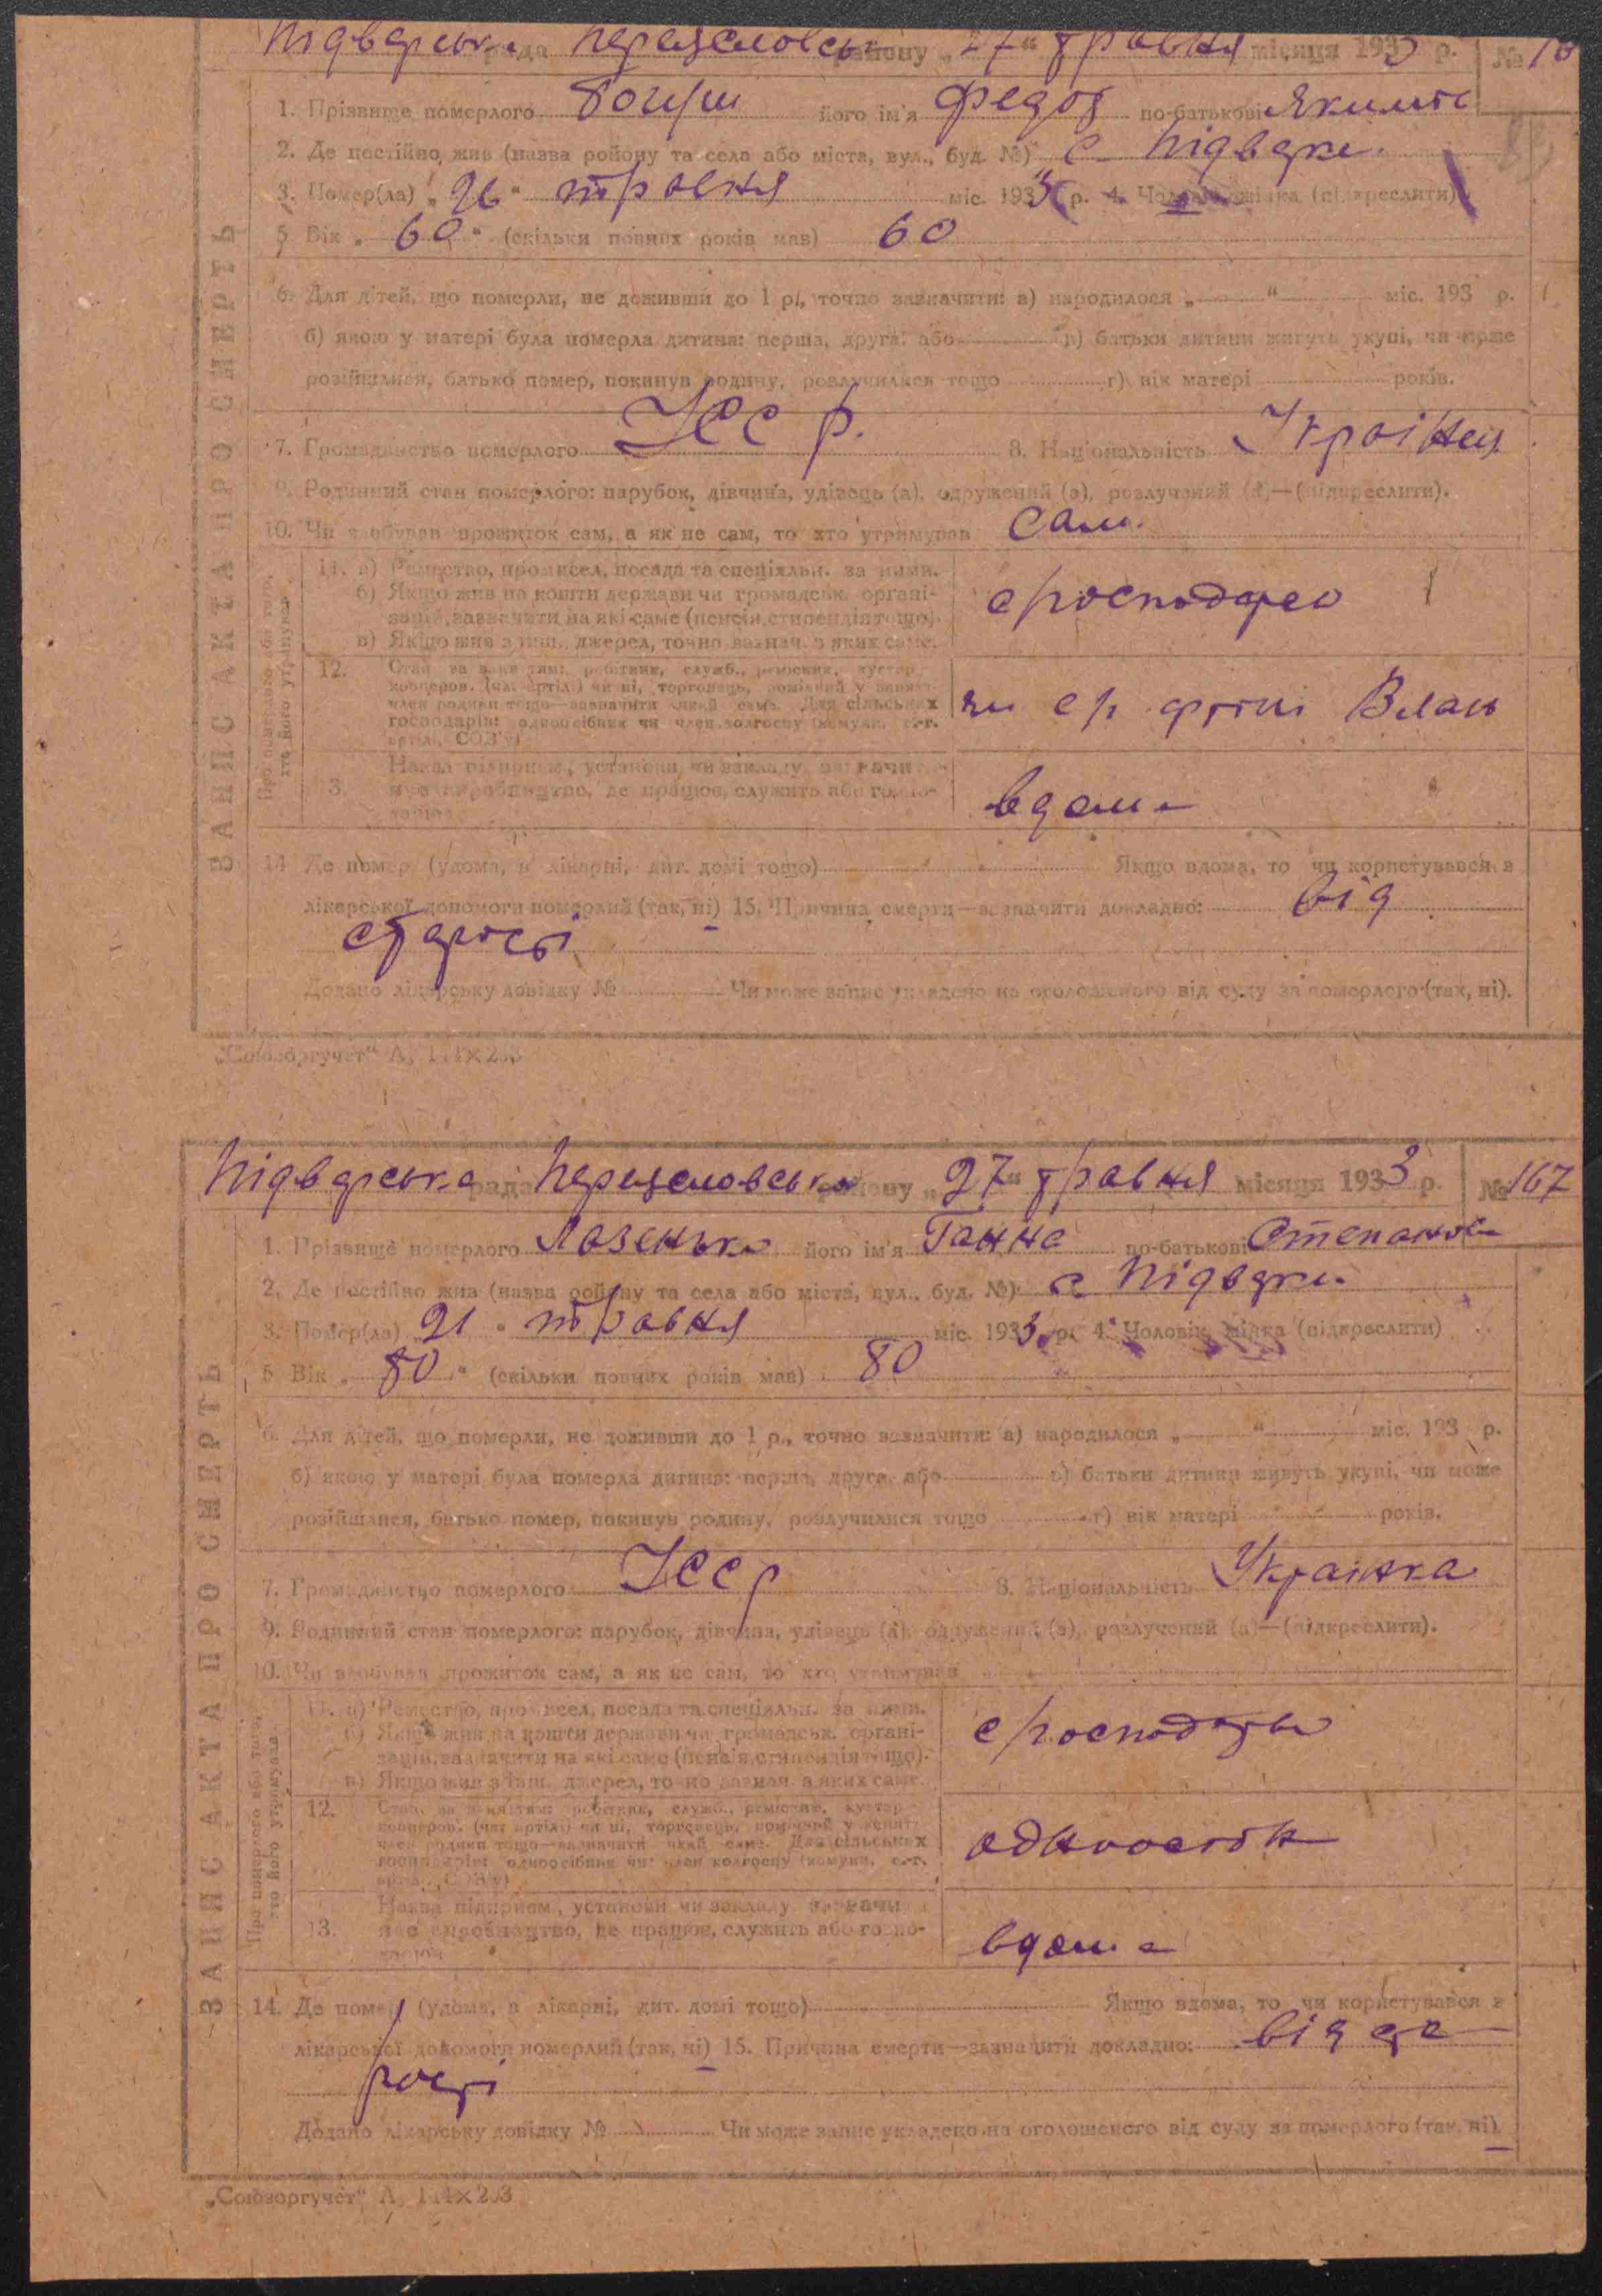 Підварська рада Переяславськ району „27“ травня місяця 1933 р. №
1. Прізвище померлого його ім'я Федор по-батькові Якимов
2. Де постійно жив (назва району та села або міста, вул., буд. №) с. Підварки.
3. Помер(ла) „26“ травня міс. 1933 р. 4. Чоловік, жінка (підкреслити)
5. Вік „60“ (скільки повних років мав) 60
6. Для дітей, що померли, не доживши до 1 р., точно зазначити: а) народилося „ “ міс. 193 р.
б) якою у матері була померла дитина: перша, друга, або в) батьки дитини живуть укупі, чи може
розійшлися, батько помер, покинув родину, розлучилися тощо г) вік матері років.
7. Громадянство померлого УССР. 8. Національність Українец
9. Родинний стан померлого: парубок, дівчина, удівець (а), одружений (а), розлучений (а)—(підкреслити).
10. Чи здобував прожиток сам, а як не сам, то хто утримував сам.
ЗАПИС АКТА ПРО СМЕРТЬ
Про померлого або того, хто його утримував
11. а) Ремество, промисел, посада та спеціяльн. за ними.
б) Якщо жив на кошти держави чи громадськ. органі-
зацій, зазначити на які саме (пенсія, стипендія тощо).
в) Якщо жив з інш. джерел, точно зазнач. з яких саме.
12. Стан за заняттям: робітник, служб., ремісник, кустар
господарів: одноосібник чи член колгоспу (комуни, с.-г.
артілі, СОЗ'у)
Назва підприєм., установи чи закладу, зазначи
вдома
14. Де помер (удома, в лікарні, дит. домі тощо) Якщо вдома, то чи користувався з
лікарської допомоги померлий (так, ні) 15. Причина смерти—зазначити докладно: від
старості
Додано лікарську довідку № Чи може запис укладено на оголошеного від суду за померлого (так, ні).
„Союзоргучет“
Підварська рада Переяславська району „27“ травня місяця 1933 р. № 167
1. Прізвище померлого Лазенько його ім'я Ганна по-батькові Степанов
2. Де постійно жив (назва району та села або міста, вул., буд. №) с. Підварки
3. Помер(ла) „21“ травня міс. 1933 р. 4. Чоловік, жінка (підкреслити)
5. Вік „80“ (скільки повних років мав) 80
6. Для дітей, що померли, не доживши до 1 р., точно зазначити: а) народилося „ “ міс. 193 р.
б) якою у матері була померла дитина: перша, друга, або в) батьки дитини живуть укупі, чи може
розійшлися, батько помер, покинув родину, розлучилися тощо г) вік матері років.
7. Громадянство померлого УССР 8. Національність Українка
9. Родинний стан померлого: парубок, дівчина, удівець (а), одружений (а), розлучений (а)—(підкреслити).
10. Чи здобував прожиток сам, а як не сам, то хто утримував
ЗАПИС АКТА ПРО СМЕРТЬ
Про померлого або того, хто його утримував
11. а) Ремество, промисел, посада та спеціяльн. за ними.
б) Якщо жив на кошти держави чи громадськ. органі-
зацій, зазначити на які саме (пенсія, стипендія тощо).
в) Якщо жив з інш. джерел, точно зазнач. з яких саме.
12. Стан за заняттям: робітник, служб., ремісник, кустар
господарів: одноосібник чи член колгоспу (комуни, с.-г.
Назва підприєм., установи чи закладу, зазначи
13. де працює, служить або госпо-
вдома
14. Де помер (удома, в лікарні, дит. домі тощо) Якщо вдома, то чи користувався з
лікарської допомоги померлий (так, ні) 15. Причина смерти—зазначити докладно: від ста
рості
Додано лікарську довідку № Чи може запис укладено на оголошеного від суду за померлого (так, ні).
„Союзоргучет“